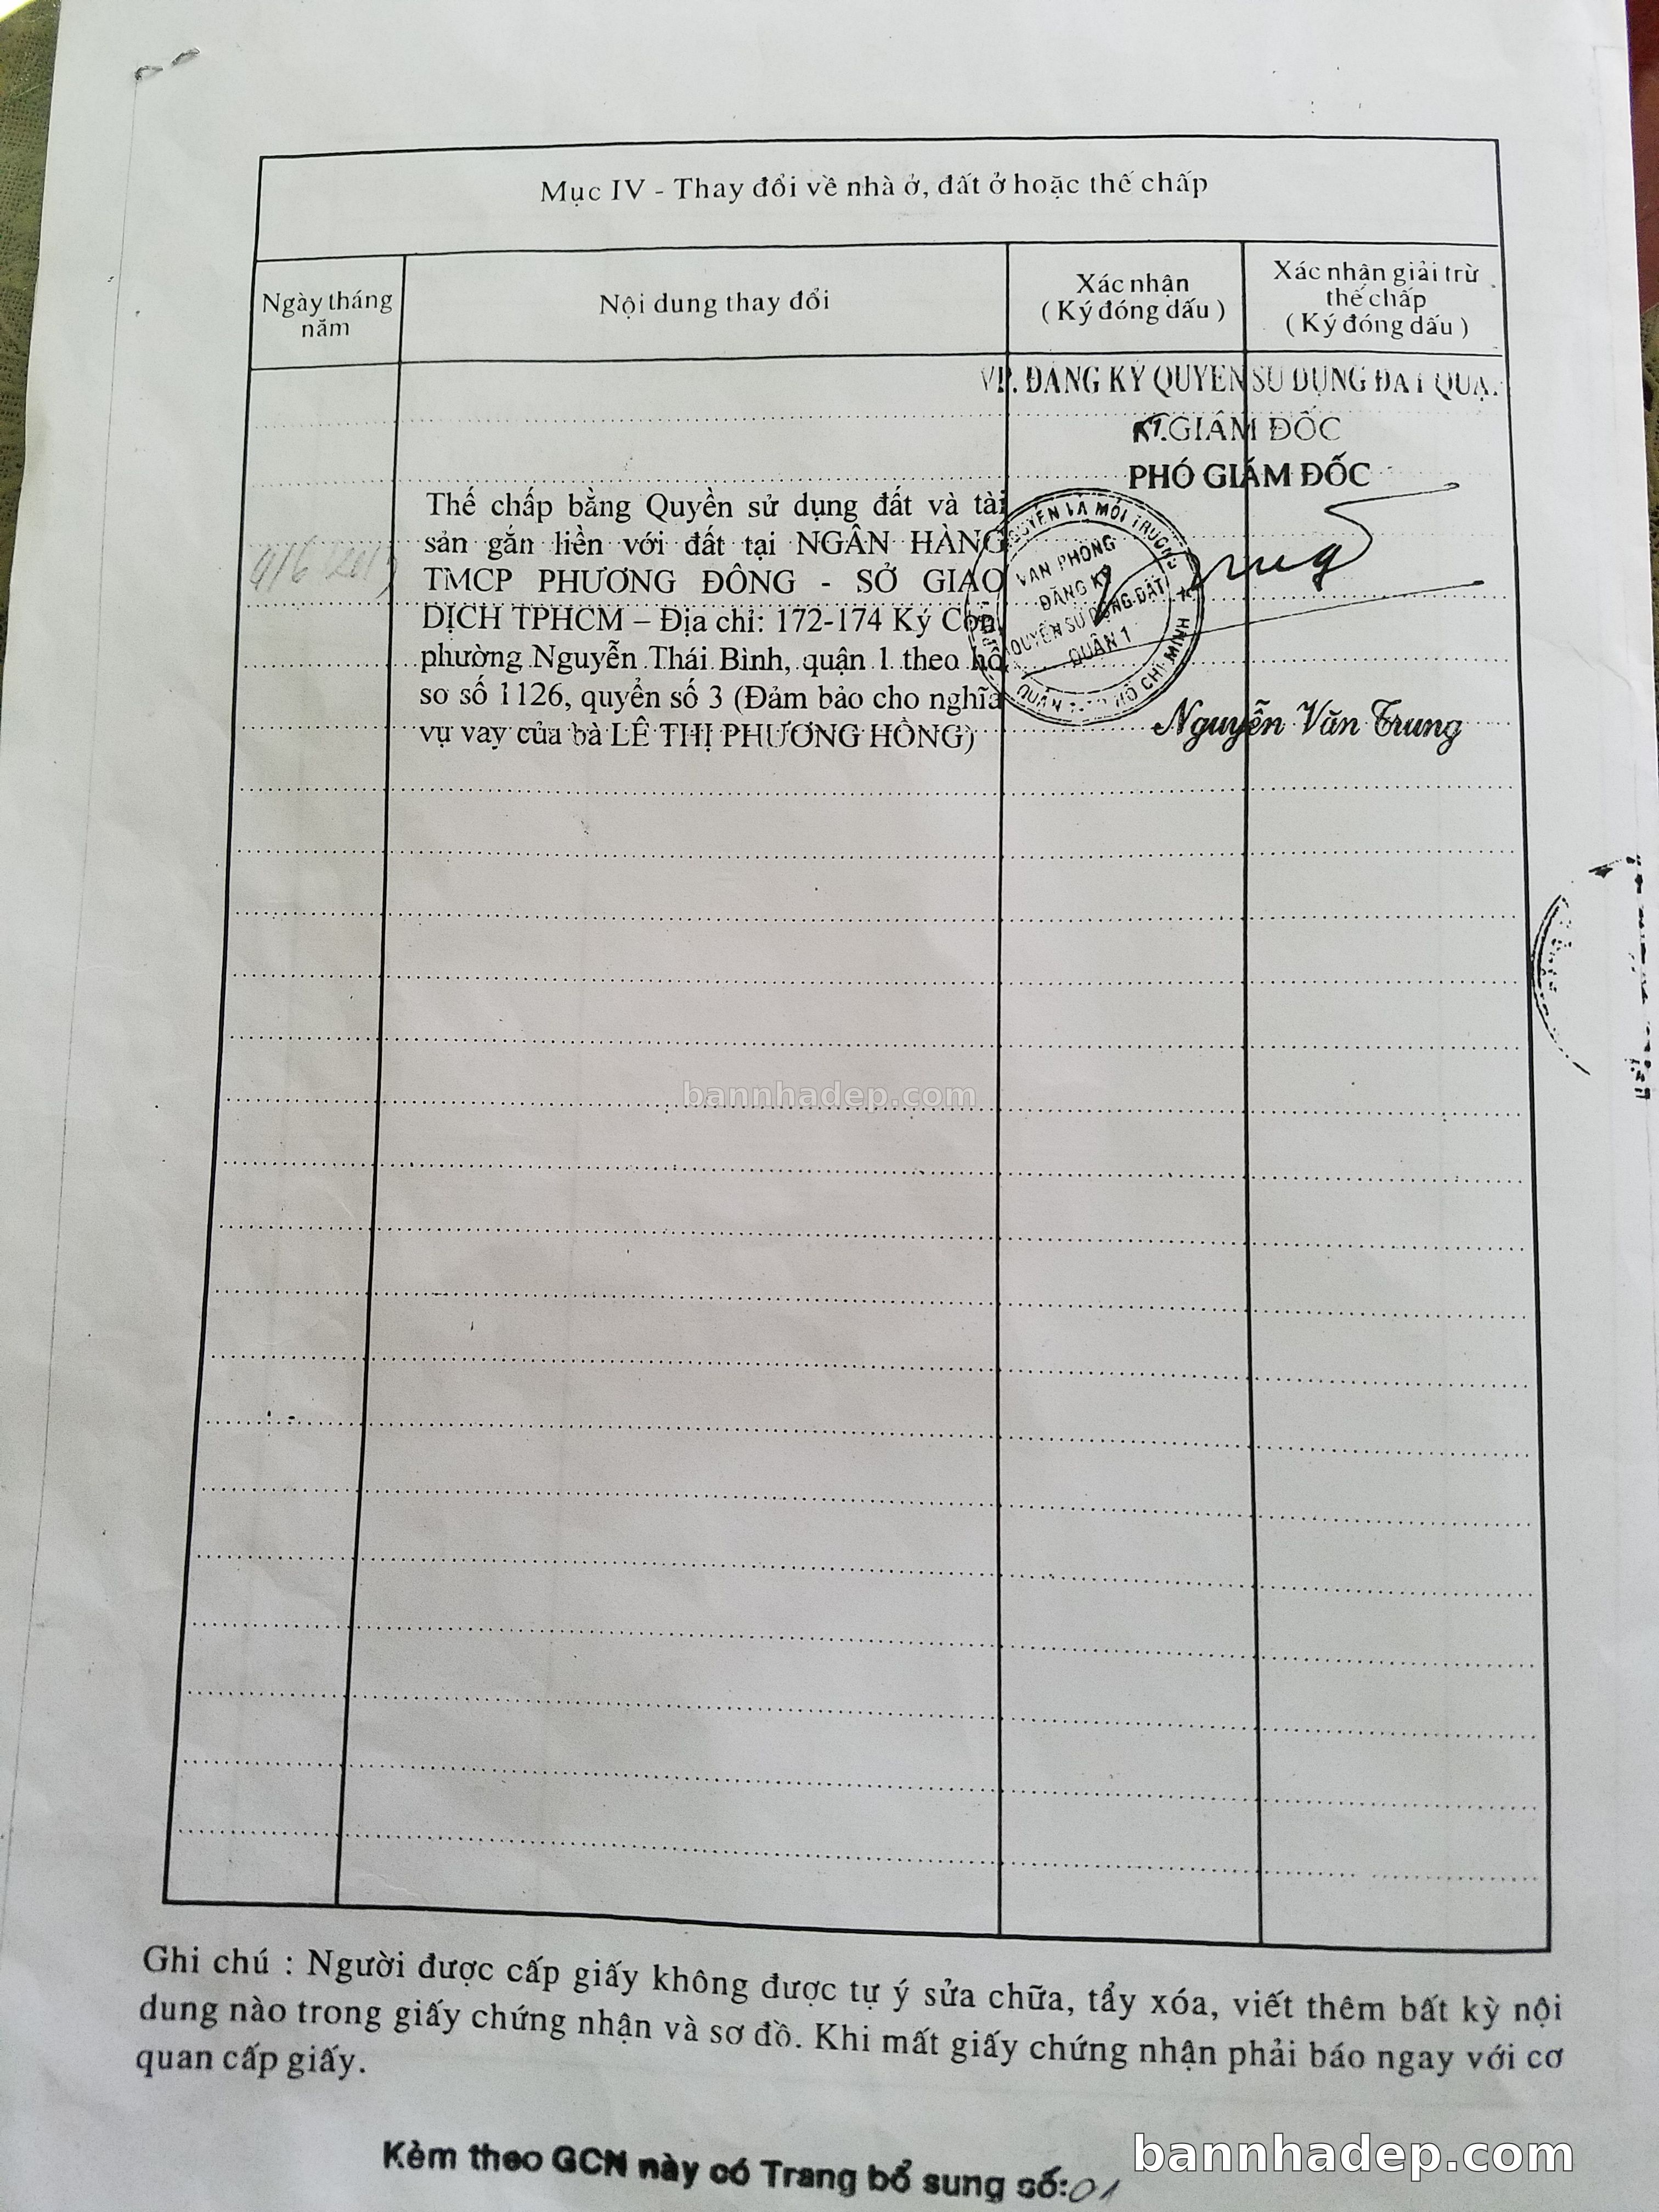 Mục IV - Thay đổi về nhà ở, đất ở hoặc thế chấp
Ngày tháng năm
Nội dung thay đổi
Xác nhận
( Ký đóng dấu )
Xác nhận giải trừ
thế chấp
( Ký đóng dấu )
VP. ĐĂNG KÝ QUYỀN SỬ DỤNG ĐẤT
KT.GIÁM ĐỐC
PHÓ GIÁM ĐỐC
Thế chấp bằng Quyền sử dụng đất và tài
sản gắn liền với đất tại NGÂN HÀNG
TMCP PHƯƠNG ĐÔNG - SỞ GIAO
DỊCH TPHCM – Địa chỉ: 172-174 Ký Con,
phường Nguyễn Thái Bình, quận 1 theo hồ
sơ số 1126, quyển số 3 (Đảm bảo cho nghĩa
vụ vay của bà LÊ THỊ PHƯƠNG HỒNG)
VĂN PHÒNG
ĐĂNG KÝ
QUYỀN SỬ DỤNG ĐẤT
QUẬN 1
Nguyễn Văn Trung
bannhadep.com
Ghi chú : Người được cấp giấy không được tự ý sửa chữa, tẩy xóa, viết thêm bất kỳ nội
dung nào trong giấy chứng nhận và sơ đồ. Khi mất giấy chứng nhận phải báo ngay với cơ
quan cấp giấy.
Kèm theo GCN này có Trang bổ sung số: 01
bannhadep.com